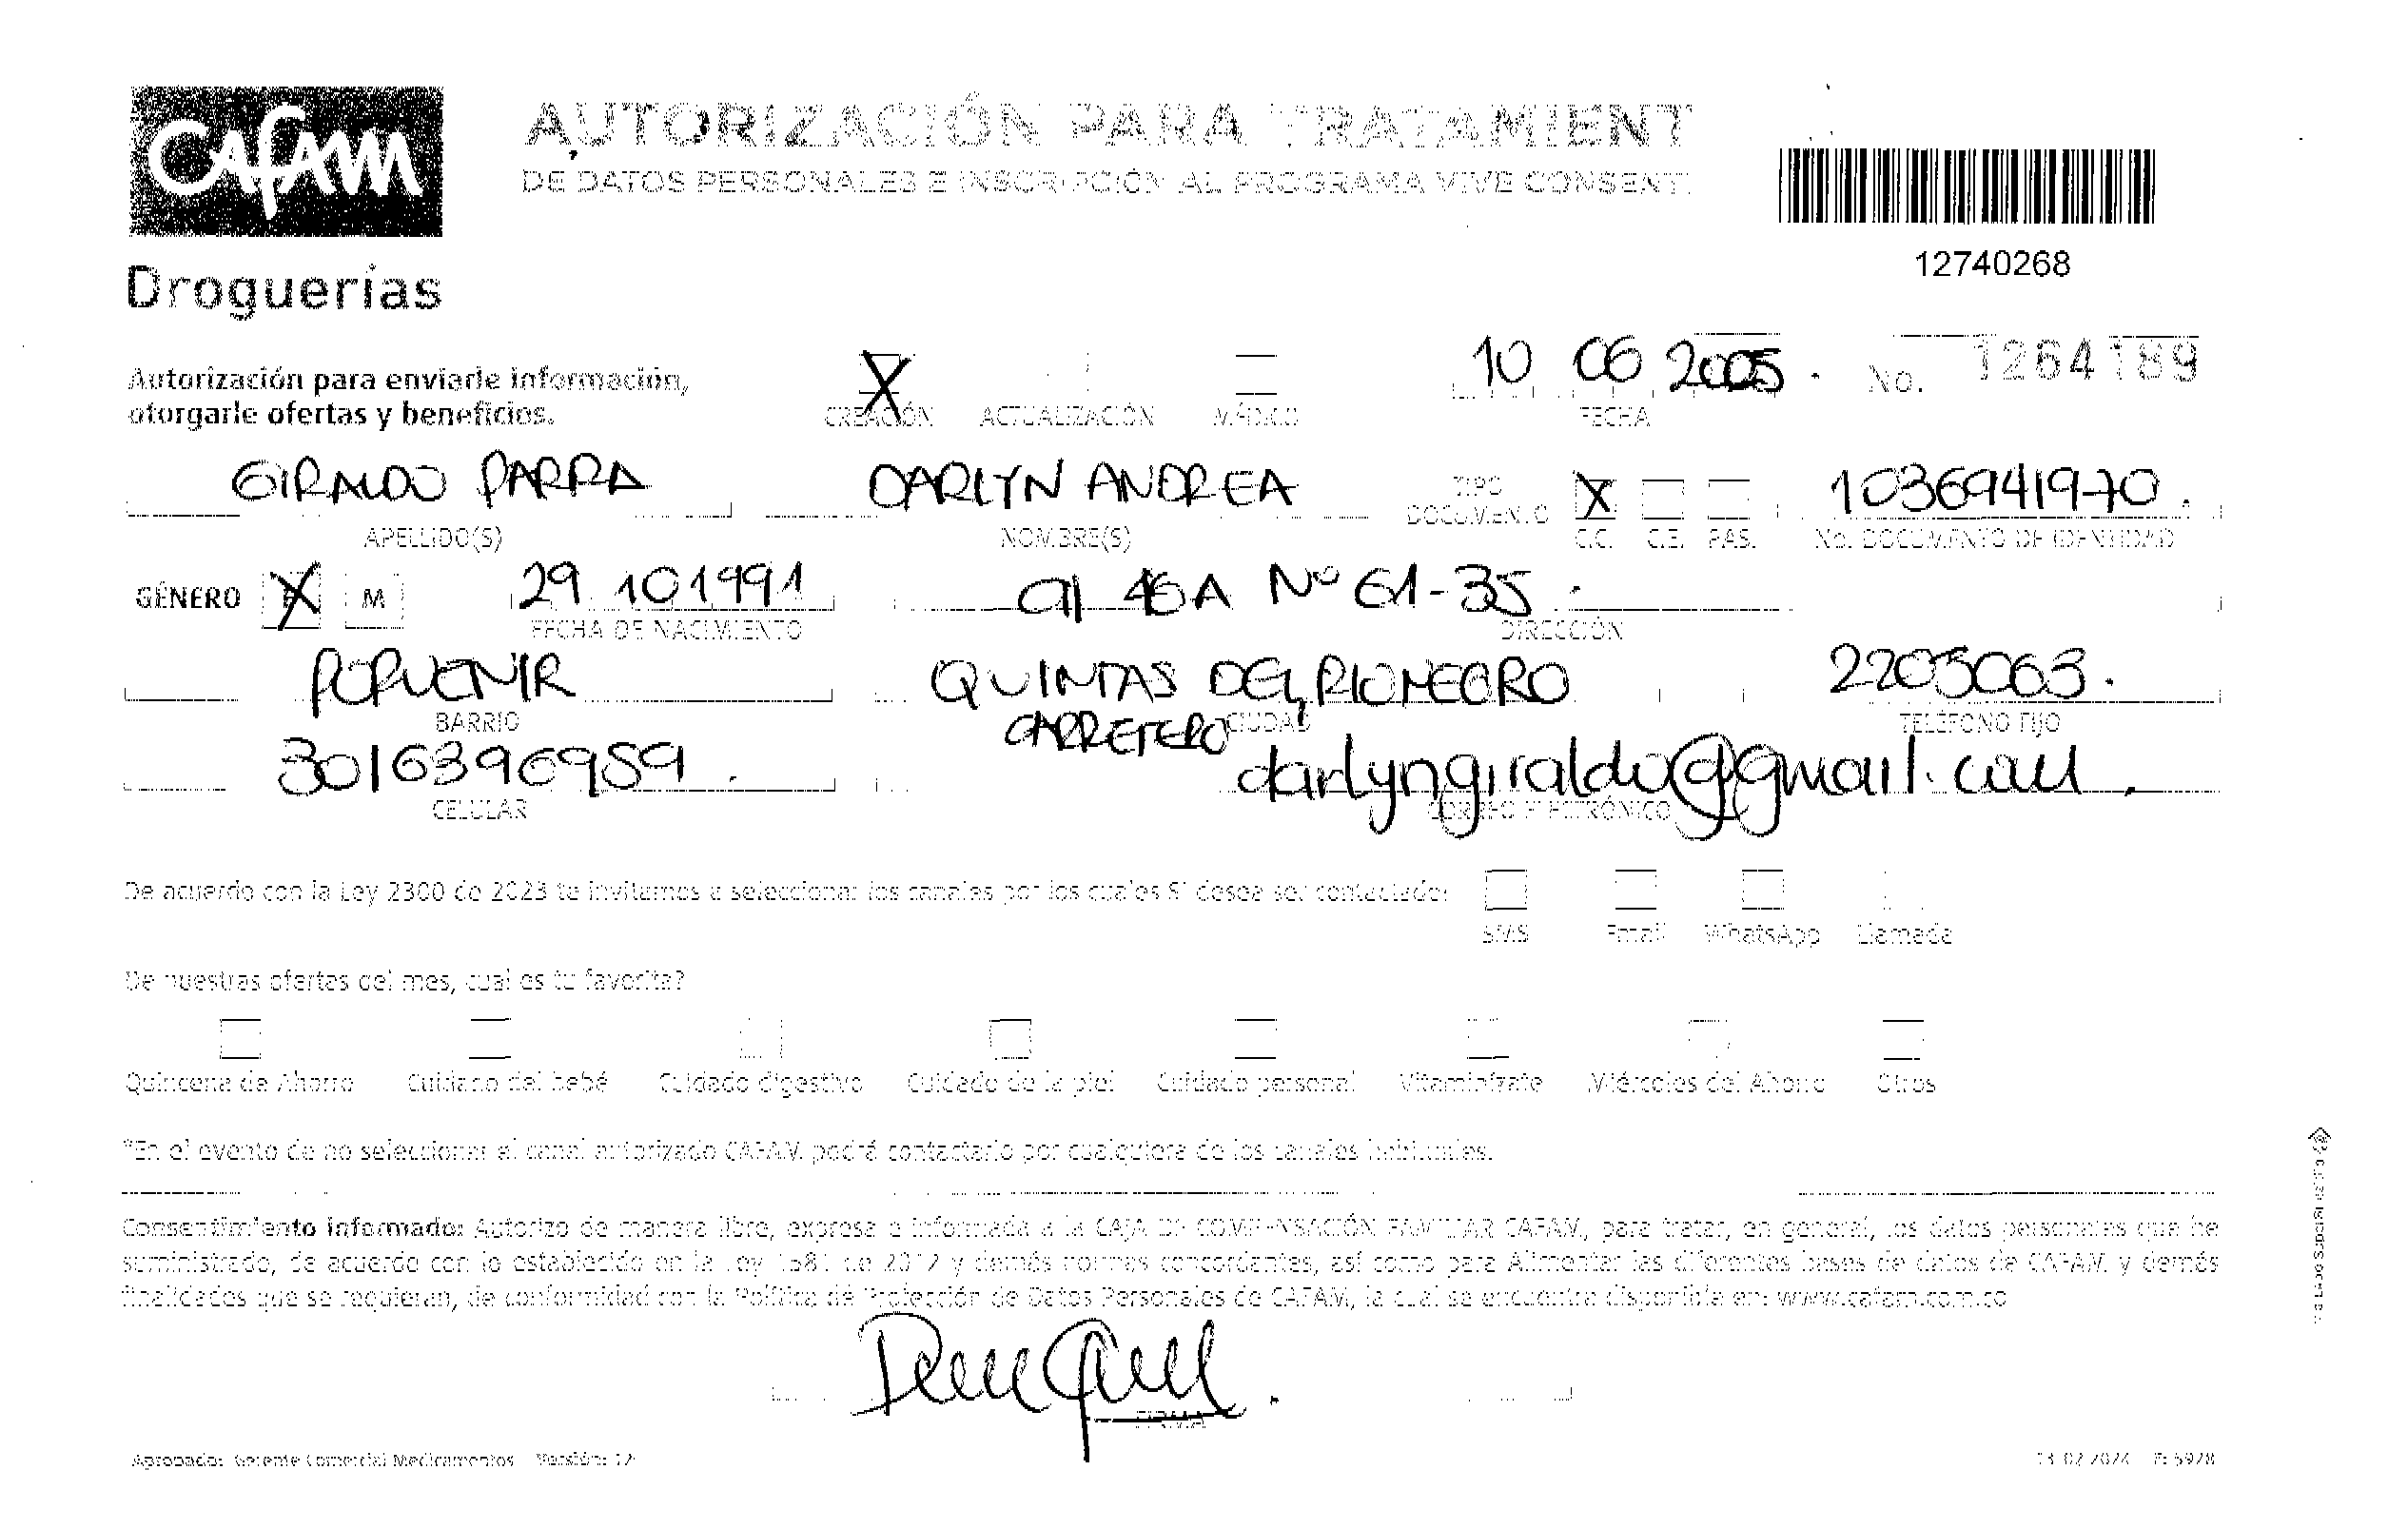 CAfAM
Droguerías
AUTORIZACIÓN PARA TRATAMIENT
DE DATOS PERSONALES E INSCRIPCIÓN AL PROGRAMA VIVE CONSENTI
12740268
Autorización para enviarle información,
otorgarle ofertas y beneficios.
X
CREACIÓN ACTUALIZACIÓN MÉDICO
10 06 2005.
FECHA
No. 1264189
GIRALDO PARRA DARLYN ANDREA TIPO DOCUMENTO X 1036941970.
APELLIDO(S) NOMBRE(S) C.C. C.E. PAS. No. DOCUMENTO DE IDENTIDAD
GÉNERO F X M 29 10 1991 Cl 46A Nº 61-35.
FECHA DE NACIMIENTO DIRECCIÓN
PORVENIR QUINTAS DEL RIONEGRO 2205063.
BARRIO CARRETERO CIUDAD TELÉFONO FIJO
3016396959. darlyngiraldo@gmail.com.
CELULAR CORREO ELECTRÓNICO
De acuerdo con la Ley 2300 de 2023 te invitamos a seleccionar los canales por los cuales SI desea ser contactado:
SMS Email WhatsApp Llamada
De nuestras ofertas del mes, cual es tu favorita?
Quincena de Ahorro Cuidado del bebé Cuidado digestivo Cuidado de la piel Cuidado personal Vitaminízate Miércoles del Ahorro Otros
*En el evento de no seleccionar el canal autorizado CAFAM podrá contactarlo por cualquiera de los canales habituales.
Consentimiento informado: Autorizo de manera libre, expresa e informada a la CAJA DE COMPENSACIÓN FAMILIAR CAFAM, para tratar, en general, los datos personales que he
suministrado, de acuerdo con lo establecido en la Ley 1581 de 2012 y demás normas concordantes, así como para Alimentar las diferentes bases de datos de CAFAM y demás
finalidades que se requieran, de conformidad con la Política de Protección de Datos Personales de CAFAM, la cual se encuentra disponible en: www.cafam.com.co
FIRMA
Aprobado: Gerente Comercial Medicamentos Versión: 12
13 02 2024 F: 5928